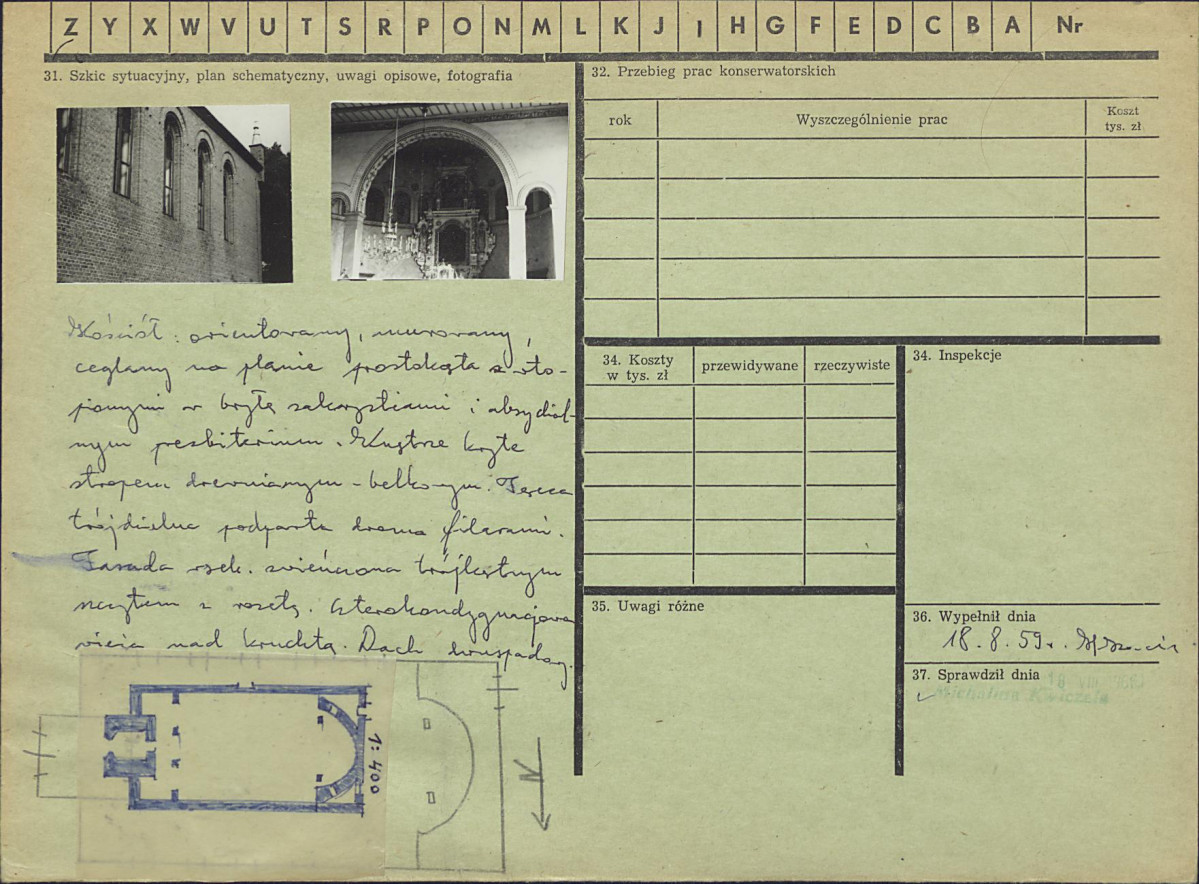 Z Y X W V U T S R P O N M L K J I H G F E D C B A Nr
31. Szkic sytuacyjny, plan schematyczny, uwagi opisowe, fotografia
Kościół: orientowany, murowany,
ceglany na planie prostokąta z wto-
pionymi w bryłę zakrystiami i absydial-
nym prezbiterium. Wnętrze kryte
stropem drewnianym - belkowym. Teren
trójdzielne podparta dwoma filarami.
Fasada zach. zwieńczona trójkątnym
szczytem z rozetą. Czterokondygnacjowa
wieża nad kruchtą. Dach dwuspadowy.
1:400
N
32. Przebieg prac konserwatorskich
rok
Wyszczególnienie prac
Koszt
tys. zł
34. Koszty
w tys. zł
przewidywane
rzeczywiste
34. Inspekcje
35. Uwagi różne
36. Wypełnił dnia
18. 8. 59 r.
37. Sprawdził dnia
18 VIII
Michalina Kwiczala